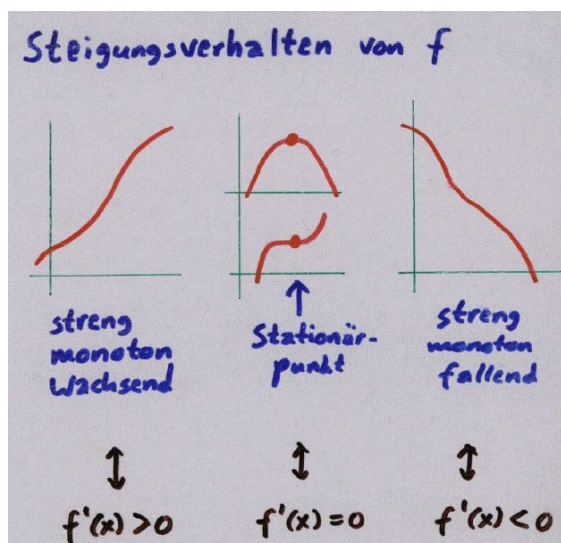 Steigungsverhalten von f
streng
monoton
wachsend
Stationär-
punkt
streng
monoton
fallend
↕
↕
↕
f'(x) > 0
f'(x) = 0
f'(x) < 0